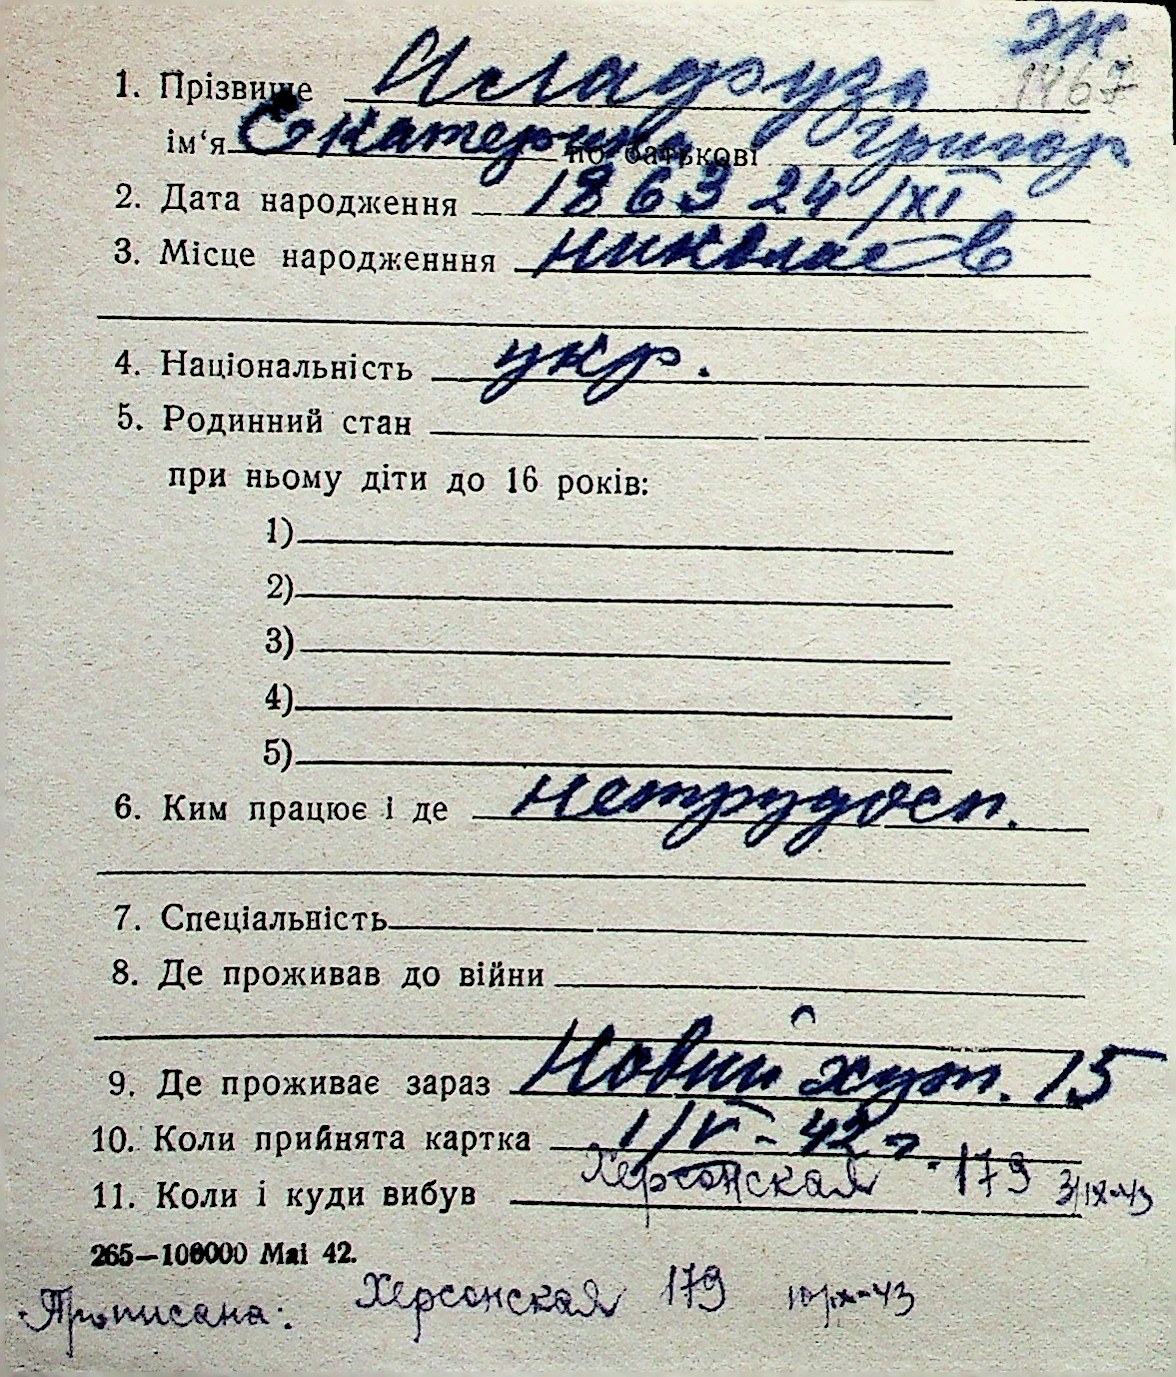 Ж
1467
1. Прізвище
ім‘я Екатерина по батькові Григор
2. Дата народження 1863 24/XI
3. Місце народженння Николаев
4. Національність укр.
5. Родинний стан
при ньому діти до 16 років:
1)
2)
3)
4)
5)
6. Ким працює і де нетрудосп.
7. Спеціальність
8. Де проживав до війни
9. Де проживає зараз Новий хут. 15
10. Коли прийнята картка 1/V-42 г.
11. Коли і куди вибув Херсонская 179 3/IX-43
265—100000 Mai 42.
Прописана: Херсонская 179 10/IX-43